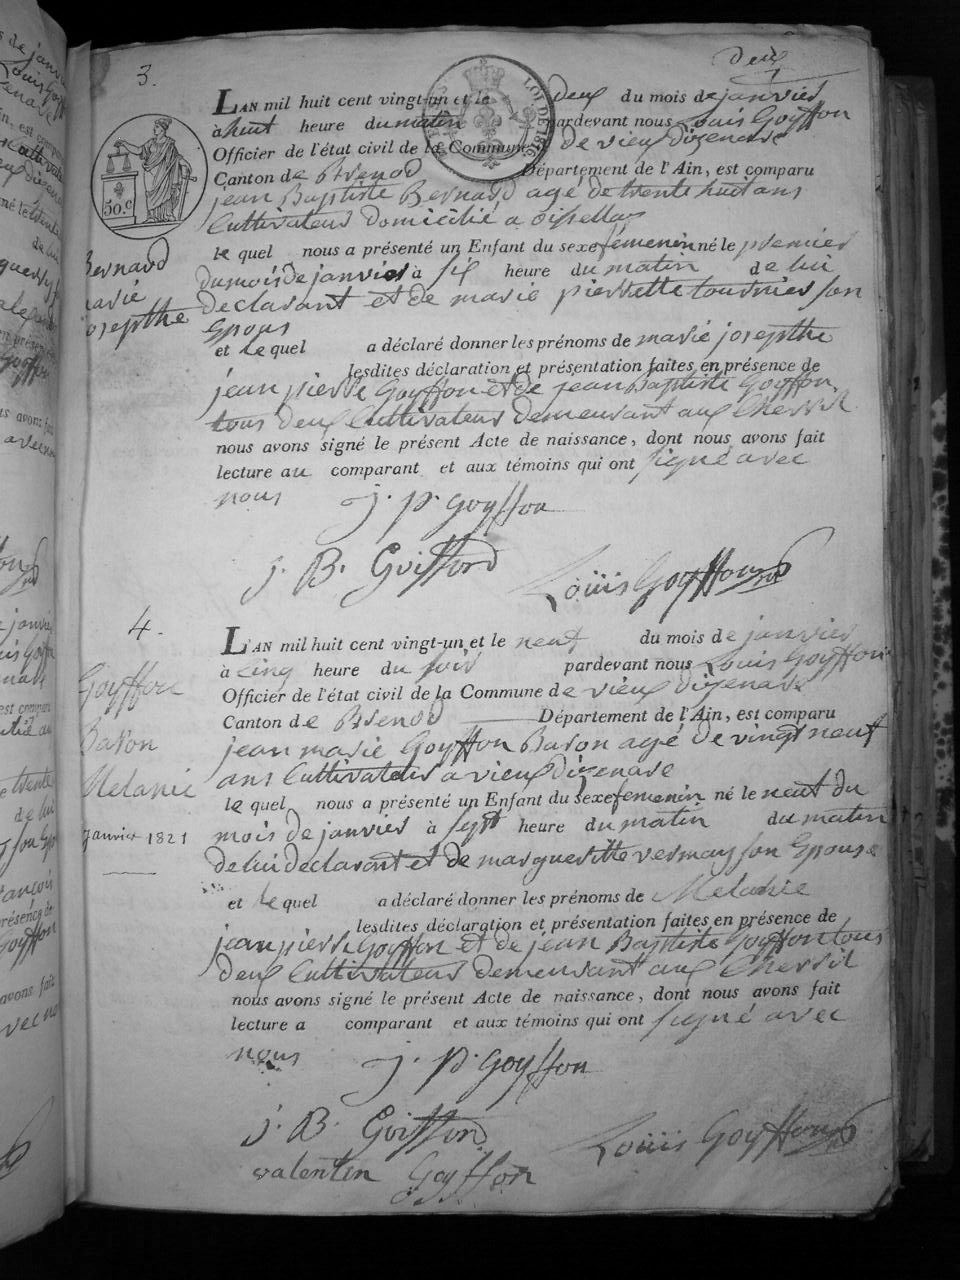 deux
3.
LOI DE 1816
50.c
L'AN mil huit cent vingt-un et le deux du mois de janvier
à huit heure du matin pardevant nous Louis Goyffon
Officier de l'état civil de la Commune de vieux dizenave
Canton de Brenod Département de l'Ain, est comparu
jean Baptiste Bernard agé de trente huit ans
Cultivateur domicilié a oisellaz
le quel nous a présenté un Enfant du sexe femenin né le premier
Bernard
marie
josepthe
du mois de janvier à six heure du matin de lui
declarant et de marie pierrette tournier son
Epous
et le quel a déclaré donner les prénoms de marie josepthe
lesdites déclaration et présentation faites en présence de
jean pierre Goyffon et de jean Baptiste Goyffon
tous deux Cultivateur demeurant aux Chevril
nous avons signé le présent Acte de naissance, dont nous avons fait
lecture au comparant et aux témoins qui ont signé avec
nous j. p. goyffon
j. B. Goiffond Louis Goyffon
4.
Goyffon
Baron
Melanie
janvier 1821
L'AN mil huit cent vingt-un et le neuf du mois de janvier
à cinq heure du soir pardevant nous Louis Goyffon
Officier de l'état civil de la Commune de vieux dizenave
Canton de Brenod Département de l'Ain, est comparu
jean marie Goyffon Baron agé de vingt neuf
ans Cultivateur a vieux dizenave
le quel nous a présenté un Enfant du sexe femenin né le neuf du
mois de janvier à sept heure du matin du matin
de lui declarant et de margueritte vermay son Epouse
et le quel a déclaré donner les prénoms de Melanie
lesdites déclaration et présentation faites en présence de
jean pierre Goyffon et de jean Baptiste Goyffon tous
deux Cultivateur demeurant aux Chevril
nous avons signé le présent Acte de naissance, dont nous avons fait
lecture a comparant et aux témoins qui ont signé avec
nous j. p. goyffon
j. B. Goiffond
valentin Goyffon Louis Goyffon